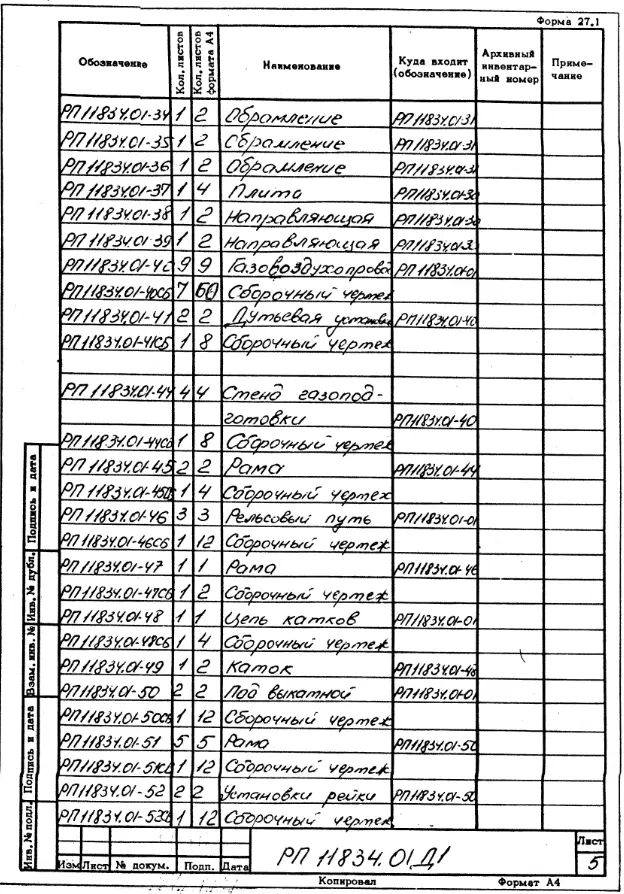 Форма 27.1
Обозначение Кол. листов Кол. листов формата А4 Наименование Куда входит (обозначение) Архивный инвентарный номер Примечание
РП11834.01-34 1 2 Обрамление РП11834.01-31
РП11834.01-35 1 2 Обрамление РП11834.01-31
РП11834.01-36 1 2 Обрамление РП11834.01-31
РП11834.01-37 1 4 Плита РП11834.01-30
РП11834.01-38 1 2 Направляющая РП11834.01-30
РП11834.01-39 1 2 Направляющая РП11834.01-3
РП11834.01-40 9 9 Газовоздухопровод РП11834.01-01
РП11834.01-40СБ 7 60 Сборочный чертеж
РП11834.01-41 2 2 Дутьевая установка РП11834.01-40
РП11834.01-41СБ 1 8 Сборочный чертеж
РП11834.01-44 4 4 Стенд газопод-
готовки РП11834.01-40
РП11834.01-44СБ 1 8 Сборочный чертеж
РП11834.01-45 2 2 Рама РП11834.01-44
РП11834.01-45СБ 1 4 Сборочный чертеж
РП11834.01-46 3 3 Рельсовый путь РП11834.01-01
РП11834.01-46СБ 1 12 Сборочный чертеж
РП11834.01-47 1 1 Рама РП11834.01-46
РП11834.01-47СБ 1 2 Сборочный чертеж
РП11834.01-48 1 1 Цепь катков РП11834.01-01
РП11834.01-48СБ 1 4 Сборочный чертеж
РП11834.01-49 1 2 Каток РП11834.01-48
РП11834.01-50 2 2 Под выкатной РП11834.01-01
РП11834.01-50СБ 1 12 Сборочный чертеж
РП11834.01-51 5 5 Рама РП11834.01-50
РП11834.01-51СБ 1 12 Сборочный чертеж
РП11834.01-52 2 2 Установки рейки РП11834.01-50
РП11834.01-52СБ 1 12 Сборочный чертеж
Подпись и дата
Инв. № дубл.
Взам. инв. №
Подпись и дата
Инв. № подл.
Изм Лист № докум. Подп. Дата
РП 11834.01Д1
Лист
5
Копировал Формат А4